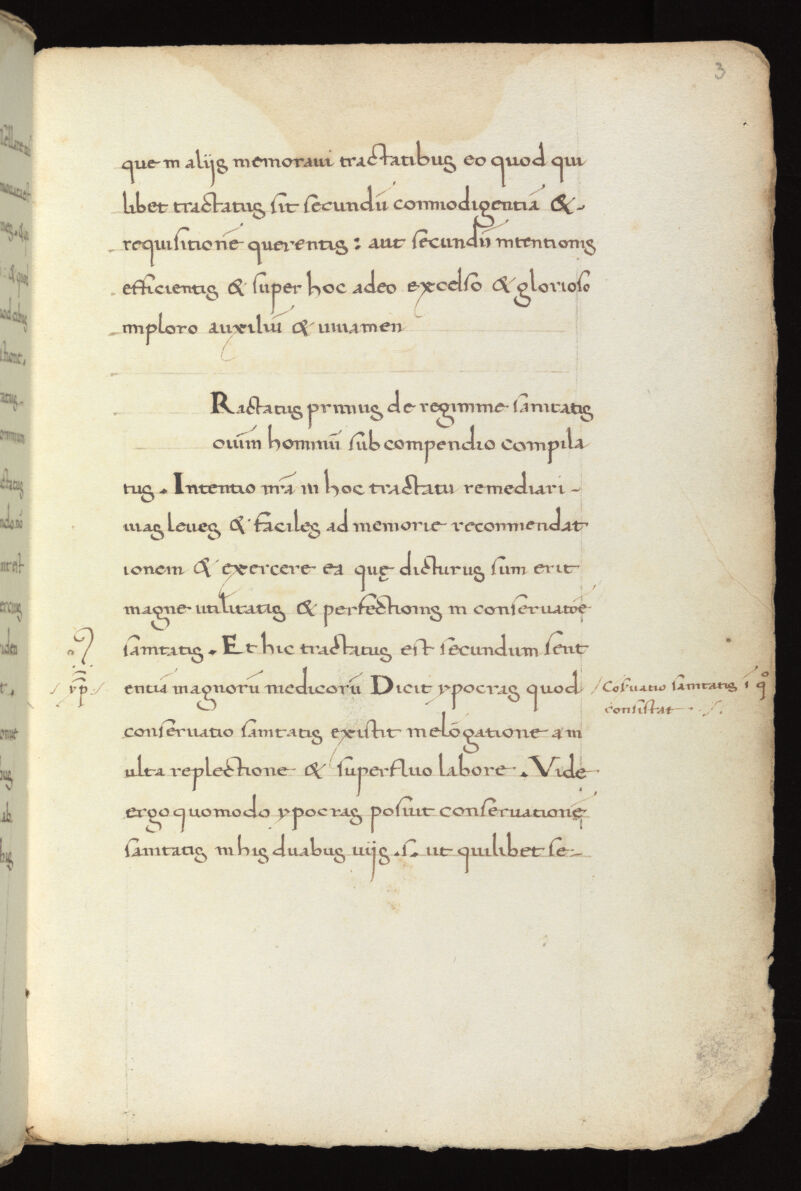 3
que in alijs memoraui tractatibus eo quod qui
libet tractatus sit secundū conmodigentiā &
requisitionē querentis : aut secundū intentionis
efficientis & super hoc adeo excelso & glorioso
imploro auxiliū & uiuamen
Ractatus primus de regimine sanitatis
oīum hominū sub compendio compila
tus. Intentio nrā in hoc tractatu remediari -
uias leues & faciles ad memorie reconmendat
ionem & exercere ea quę dicturus sum erit
magne utilitatis & perfectionis in conseruatōe
sanitatis. Et hic tractatus est secundum sent
entiā magnorū medicorū Dicit ypocras quod
yp̄
Cōsuatio sanitatis ī qº
consistat
conseruatio sanitatis existit in elōgatione a m
ulta replectione & superfluo labore. Vide
ergo quomodo ypocras posuit conseruationē
sanitatis in his duabus uijs .s. ut quilibet se-